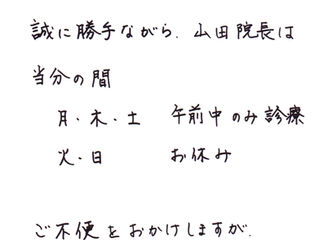 誠に勝手ながら、山田院長は
当分の間
月・木・土　午前中のみ診療
火・日　お休み
ご不便をおかけしますが、